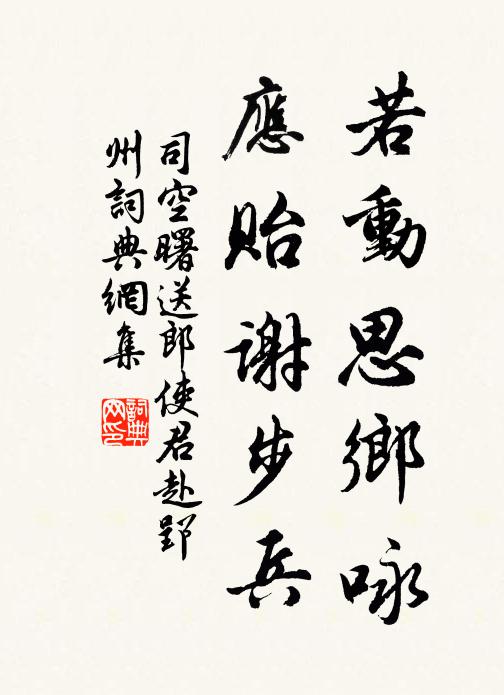 若動思鄉咏
應貽謝步兵
司空曙送郎使君赴郢
州詞典網集
詞典
网印